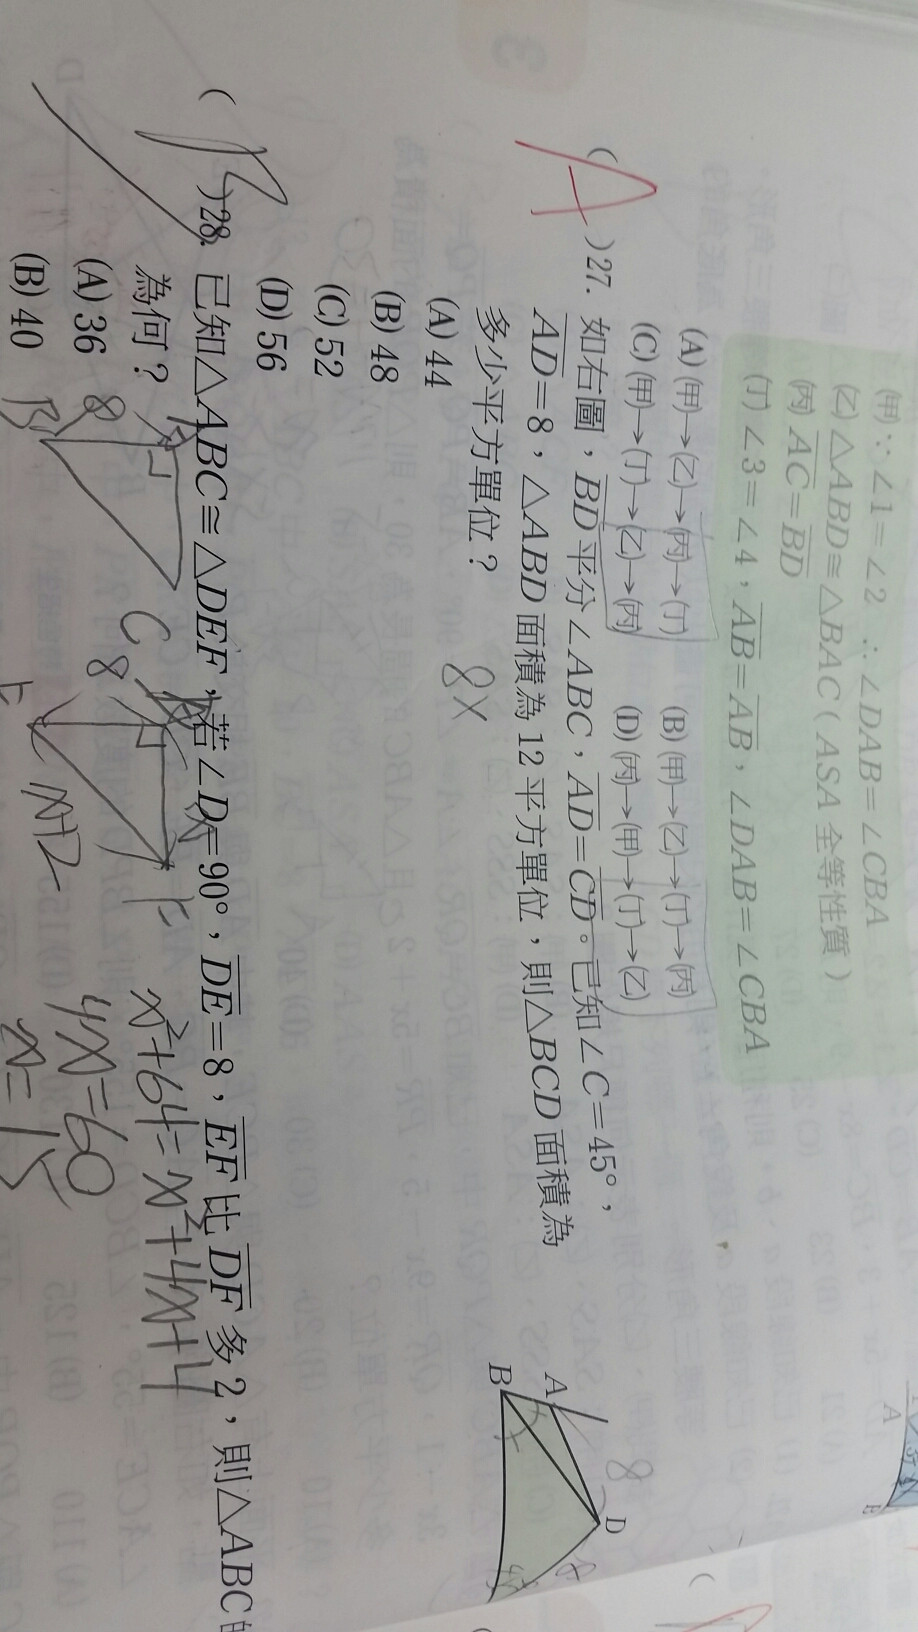 (甲) ∵ ∠1=∠2 ∴ ∠DAB=∠CBA
(乙) △ABD≅△BAC ( ASA 全等性質 )
(丙) AC=BD
(丁) ∠3=∠4，AB=AB，∠DAB=∠CBA
(A) (甲)→(乙)→(丙)→(丁) (B) (甲)→(乙)→(丁)→(丙)
(C) (甲)→(丁)→(乙)→(丙) (D) (丙)→(甲)→(丁)→(乙)
( A )27. 如右圖，BD平分∠ABC，AD=CD。已知∠C=45°，
AD=8，△ABD面積為12平方單位，則△BCD面積為
多少平方單位？
8x
(A) 44
(B) 48
(C) 52
(D) 56
A
B
D
8
( )28. 已知△ABC≅△DEF，若∠D=90°，DE=8，EF比DF多2，則△ABC
為何？
(A) 36
(B) 40
8
B
C
8
x
F
x+2
x²+64=x²+4x+4
4x=60
x=15
A